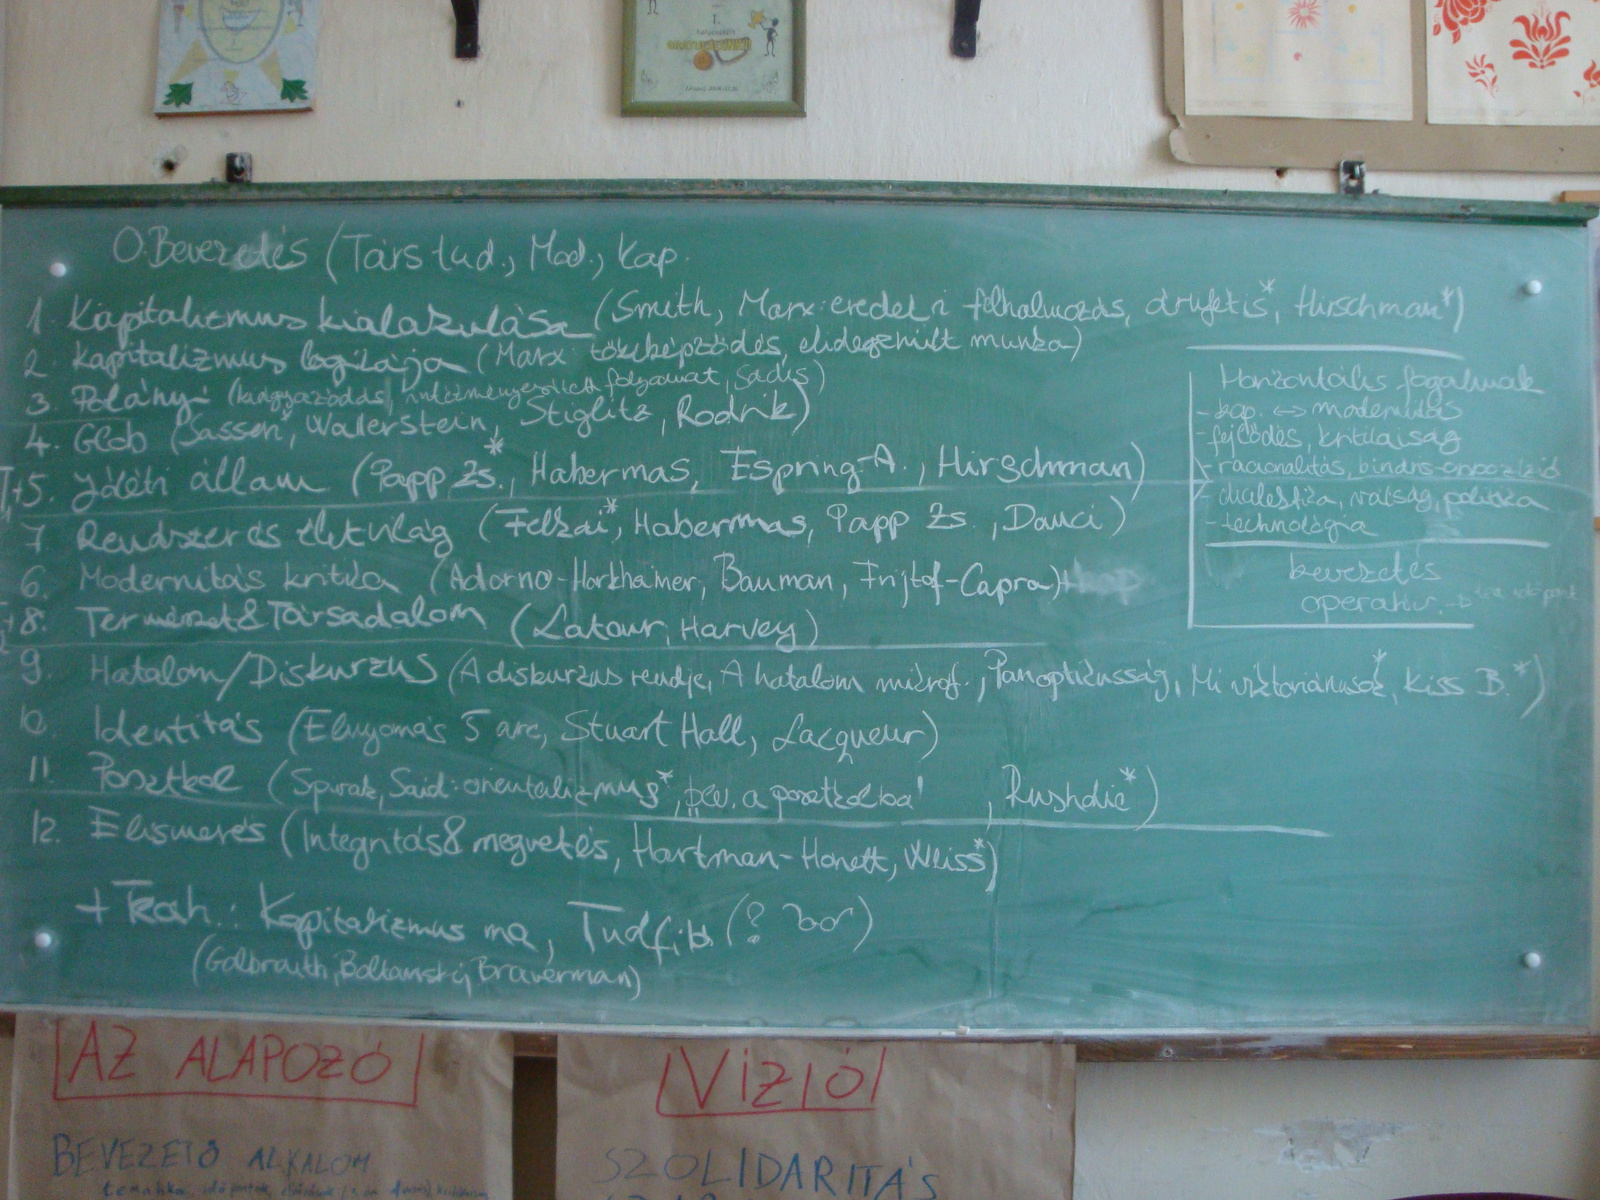 0. Bevezetés (Társ tud., Mod., Kap.
1. Kapitalizmus kialakulása (Smith, Marx: eredeti felhalmozás, árufetis*, Hirschman*)
2. Kapitalizmus logikája (Marx: tőkeképződés, elidegenült munka)
3. Polányi (beágyazódás, intézményesített folyamat,
4. Glob (Sassen*, Wallerstein, Stiglitz, Rodrik)
5. Jóléti állam (Papp Zs.*, Habermas, Esping-A., Hirschman)
7. Rendszer és életvilág (Felkai*, Habermas, Papp Zs.,
6. Modernitás kritika (Adorno-Horkheimer, Bauman, Frijtof-Capra)+
+8. Természet & Társadalom (Latour, Harvey)
9. Hatalom/Diskurzus (A diskurzus rendje, A hatalom mikrof., Panoptikusság, Mi viktoriánusok*, Kiss B.*)
10. Identitás (Elnyomás 5 arc, Stuart Hall, Lacqueur)
11. Posztkol (Spivak, Said: orientalizmus*, bev. a posztkolba!, Rushdie*)
12. Elismerés (Integritás & megvetés, Hartman-Honett, Weiss*)
+ : Kapitalizmus ma, Tudfil. (?
(Galbraith, Boltanski, Braverman)
Horizontális fogalmak
- kap. <-> modernitás
- fejlődés, kritikaiság
- racionalitás, bináris oppozíció
- dialektika, válság, politika
- technológia
bevezetés
operatív. ->
AZ ALAPOZÓ
BEVEZETŐ ALKALOM
tematika,
VÍZIÓ
SZOLIDARITÁS